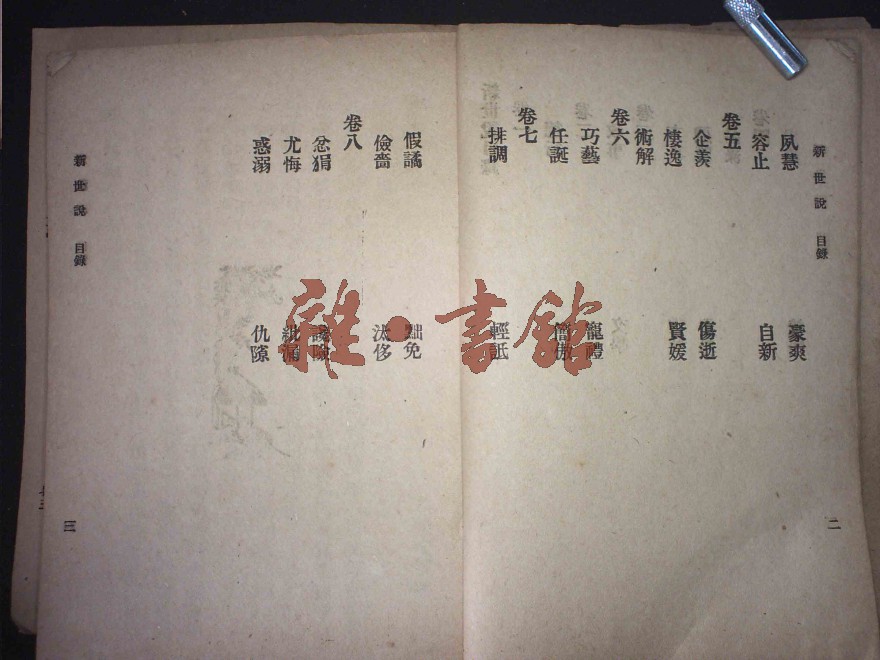 新世說 目錄
夙慧 豪爽
容止 自新
卷五
企羨 傷逝
棲逸 賢媛
術解
卷六
巧藝 寵禮
任誕 簡傲
卷七
排調 輕詆
二
假譎 黜免
儉嗇 汰侈
卷八
忿狷 讒險
尤悔 紕漏
惑溺 仇隙
新世說 目錄
三
雜·書館